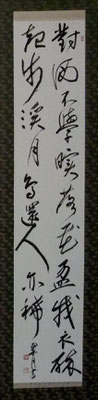 對酒不覺暝落花盈我衣醉
起步溪月鳥還人亦稀